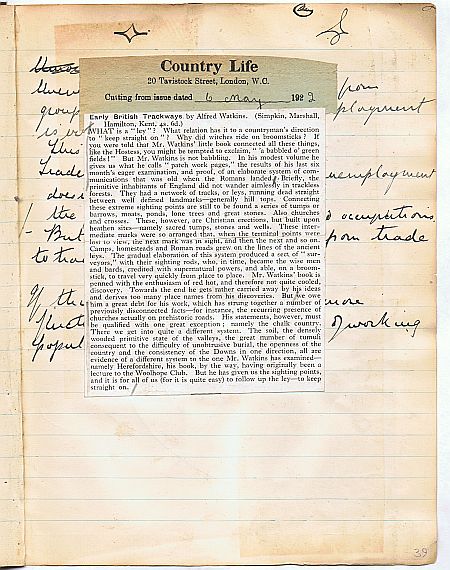 Country Life
20 Tavistock Street, London, W.C.
Cutting from issue dated 6 May 1922
Early British Trackways, by Alfred Watkins. (Simpkin, Marshall,
Hamilton, Kent, 4s. 6d.)
WHAT is a "ley"? What relation has it to a countryman's direction
to "keep straight on"? Why did witches ride on broomsticks? If
you were told that Mr. Watkins' little book connected all these things,
like the Hostess, you might be tempted to exclaim, "a babbled o' green
fields!" But Mr. Watkins is not babbling. In his modest volume he
gives us what he calls "patch work pages," the results of his last six
month's eager examination, and proof, of an elaborate system of com-
munications that was old when the Romans landed. Briefly, the
primitive inhabitants of England did not wander aimlessly in trackless
forests. They had a network of tracks, or leys, running dead straight
between well defined landmarks—generally hill tops. Connecting
these extreme sighting points are still to be found a series of tumps or
barrows, moats, ponds, lone trees and great stones. Also churches
and crosses. These, however, are Christian erections, but built upon
heathen sites—namely sacred tumps, stones and wells. These inter-
mediate marks were so arranged that, when the terminal points were
lost to view, the next mark was in sight, and then the next and so on.
Camps, homesteads and Roman roads grew on the lines of the ancient
leys. The gradual elaboration of this system produced a sect of "sur-
veyors," with their sighting rods, who, in time, became the wise men
and bards, credited with supernatural powers, and able, on a broom-
stick, to travel very quickly from place to place. Mr. Watkins' book is
penned with the enthusiasm of red hot, and therefore not quite cooled,
discovery. Towards the end he gets rather carried away by his ideas
and derives too many place names from his discoveries. But we owe
him a great debt for his work, which has strung together a number of
previously disconnected facts—for instance, the recurring presence of
churches actually on prehistoric roads. His statements, however, must
be qualified with one great exception; namely the chalk country.
There we get into quite a different system. The soil, the densely
wooded primitive state of the valleys, the great number of tumuli
consequent to the difficulty of unobtrusive burial, the openness of the
country and the consistency of the Downs in one direction, all are
evidence of a different system to the one Mr. Watkins has examined—
namely Herefordshire, his book, by the way, having originally been a
lecture to the Woolhope Club. But he has given us the sighting points,
and it is for all of us (for it is quite easy) to follow up the ley—to keep
straight on.
from
group ployment
is
this
trade unemployment
does
the occupations
But from trade
to
of the more
of working
popul
39